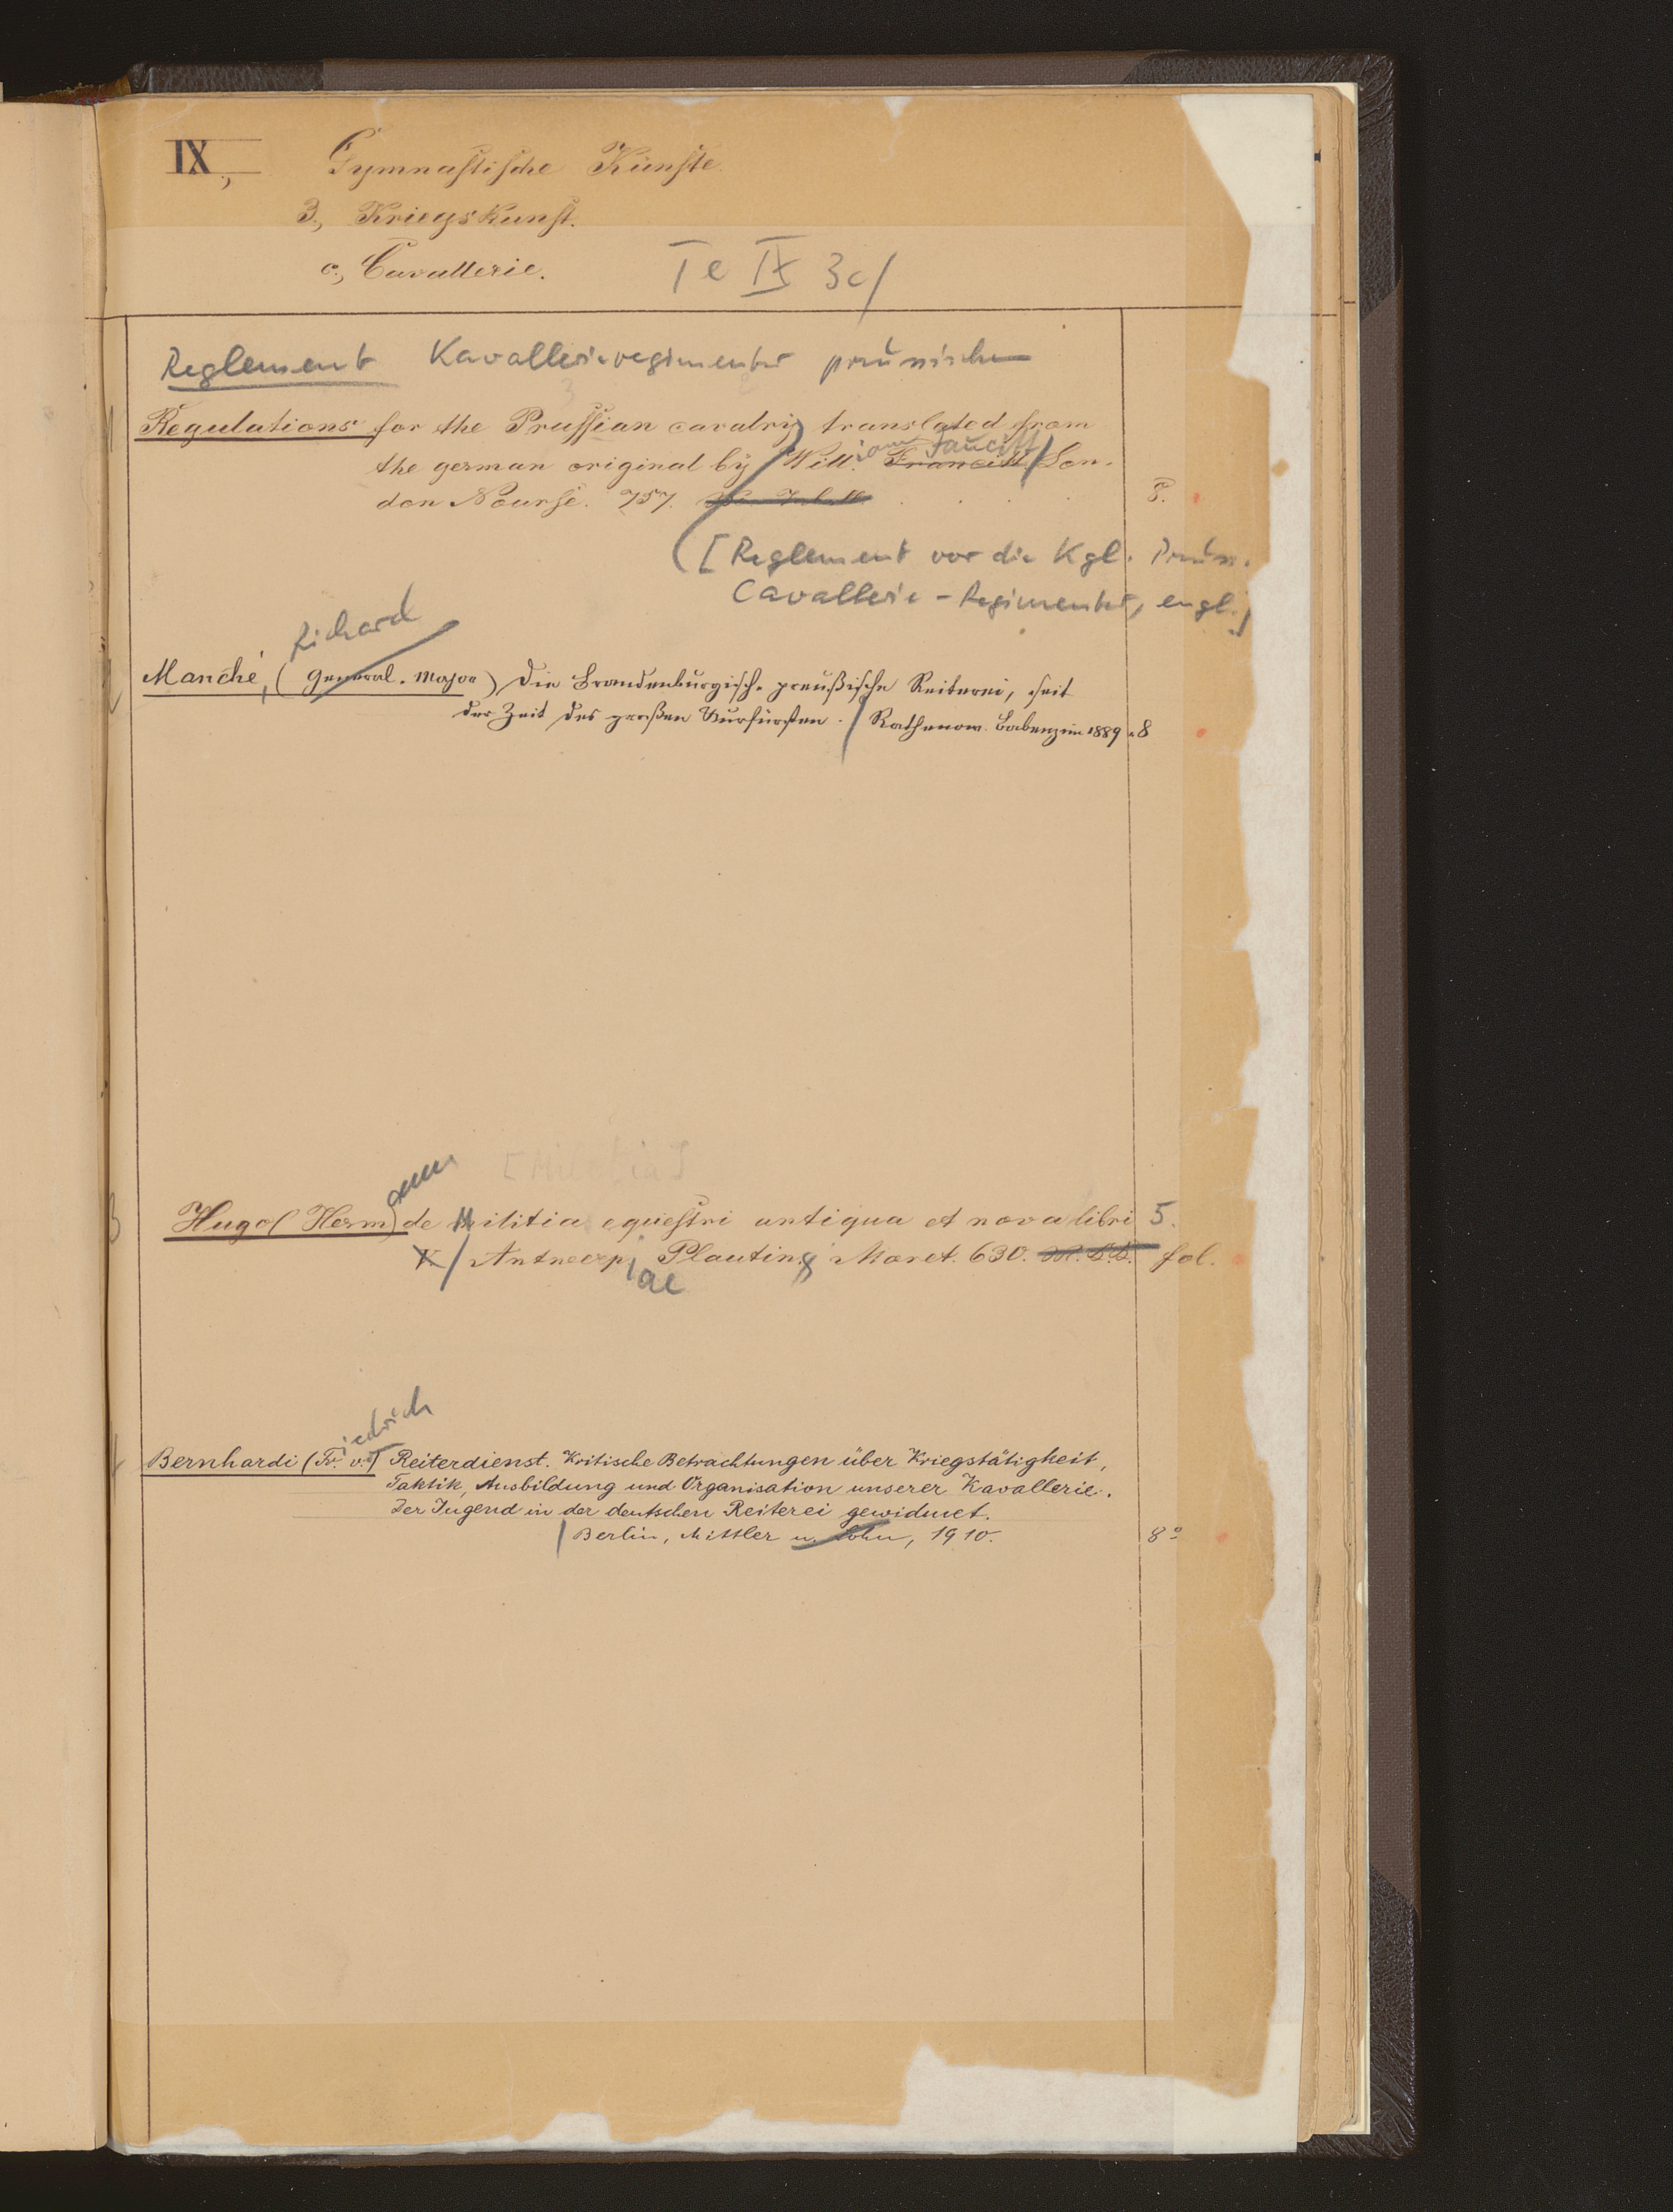 IX, Gymnastische Künste.
3, Kriegskunst.
c, Cavallerie. Te IX 3c/
Reglement Kavallerieregimenter preussische
Regulations for the Prussian cavalry translated from
the german original by / Will.iam Faucitt / Lon-
don Nourse. 757. 8.
([Reglement vor die Kgl. Preuss.
Cavallerie-Regimenter, engl.]
Richard
Manché, (General-Major) Die Brandenburgisch-preußische Reiterei, seit
der Zeit des großen Kurfürsten. / Rathenow. Babenzien 1889. 8
3 Hugo (Herm)ann de Militia equestri antiqua et nova libri 5.
/ Antwerp,iae Plantin. Moret. 630. fol.
Bernhardi (Fr.iedrich v.) Reiterdienst. Kritische Betrachtungen über Kriegstätigkeit,
Taktik, Ausbildung und Organisation unserer Kavallerie.
Der Jugend in der deutschen Reiterei gewidmet.
/ Berlin, Mittler u. Sohn, 1910. 8°